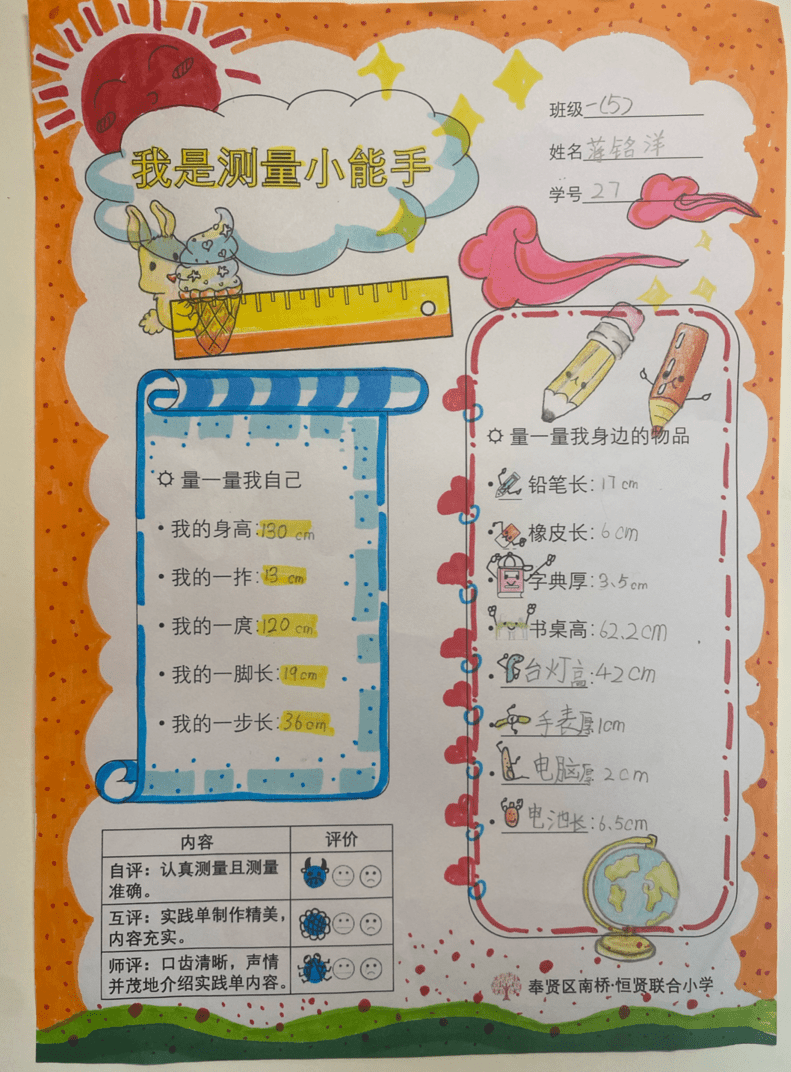 班级一(5)
姓名蒋铭洋
学号27
我是测量小能手
量一量我自己
•我的身高:130 cm
•我的一拃:13 cm
•我的一庹:120 cm
•我的一脚长:19cm
•我的一步长:36cm
量一量我身边的物品
•铅笔长:17cm
•橡皮长:6cm
•字典厚:3.5cm
•书桌高:62.2cm
•台灯高:42cm
•手表厚1cm
•电脑厚2cm
•电池长:6.5cm
内容 评价
自评：认真测量且测量
准确。
互评：实践单制作精美，
内容充实。
师评：口齿清晰，声情
并茂地介绍实践单内容。
奉贤区南桥·恒贤联合小学